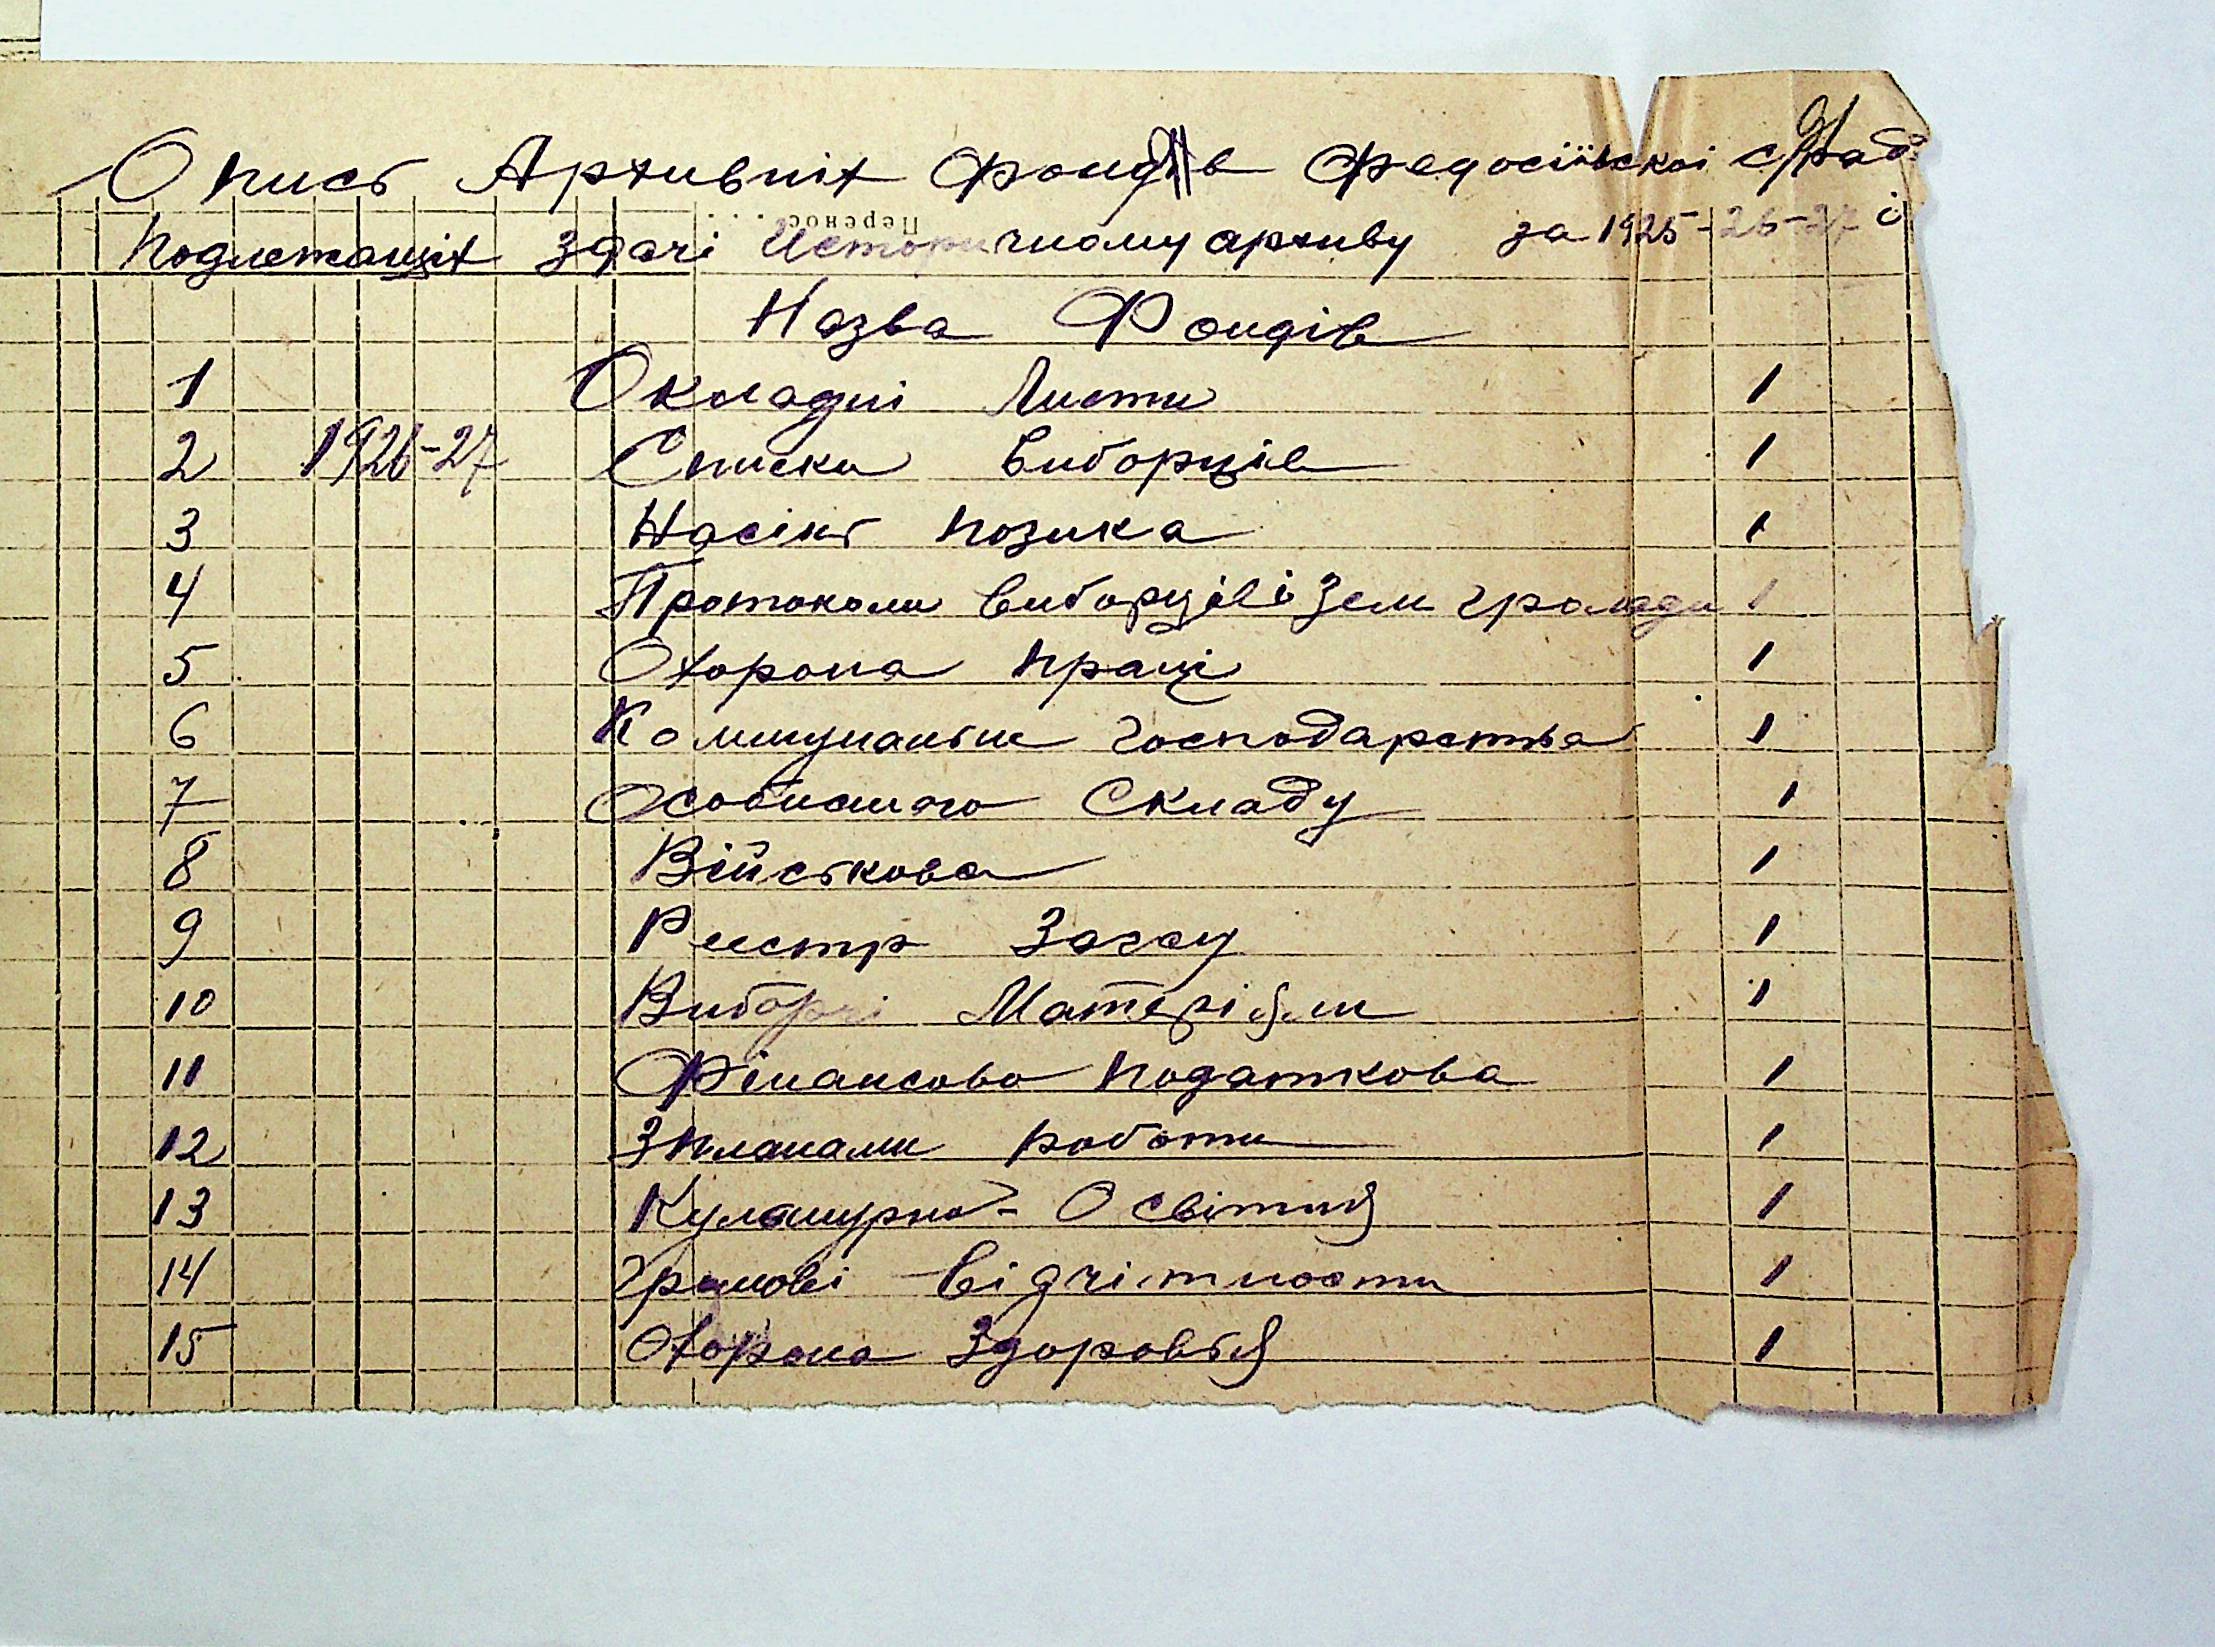 Опись Архивніх фондів Федосіївскої с/рад
Перенос . . .
подлежащіх здачі Историчному архиву за 1925-26-27 і
Назва Фондів
1 Окладні Листи 1
2 1926-27 Списки виборців 1
3 Насінь позика 1
4 Протоколи виборців і Зем громади 1
5 Охорона праці 1
6 Коммунальне господарства 1
7 Особистого Складу 1
8 Військова 1
9 Реєстр Загсу 1
10 Виборчі Матеріяли 1
11 Фінансово податкова 1
12 З планами роботи 1
13 Культурно-Освітня 1
14 Грошові відчітности 1
15 Охорона Здоровья 1